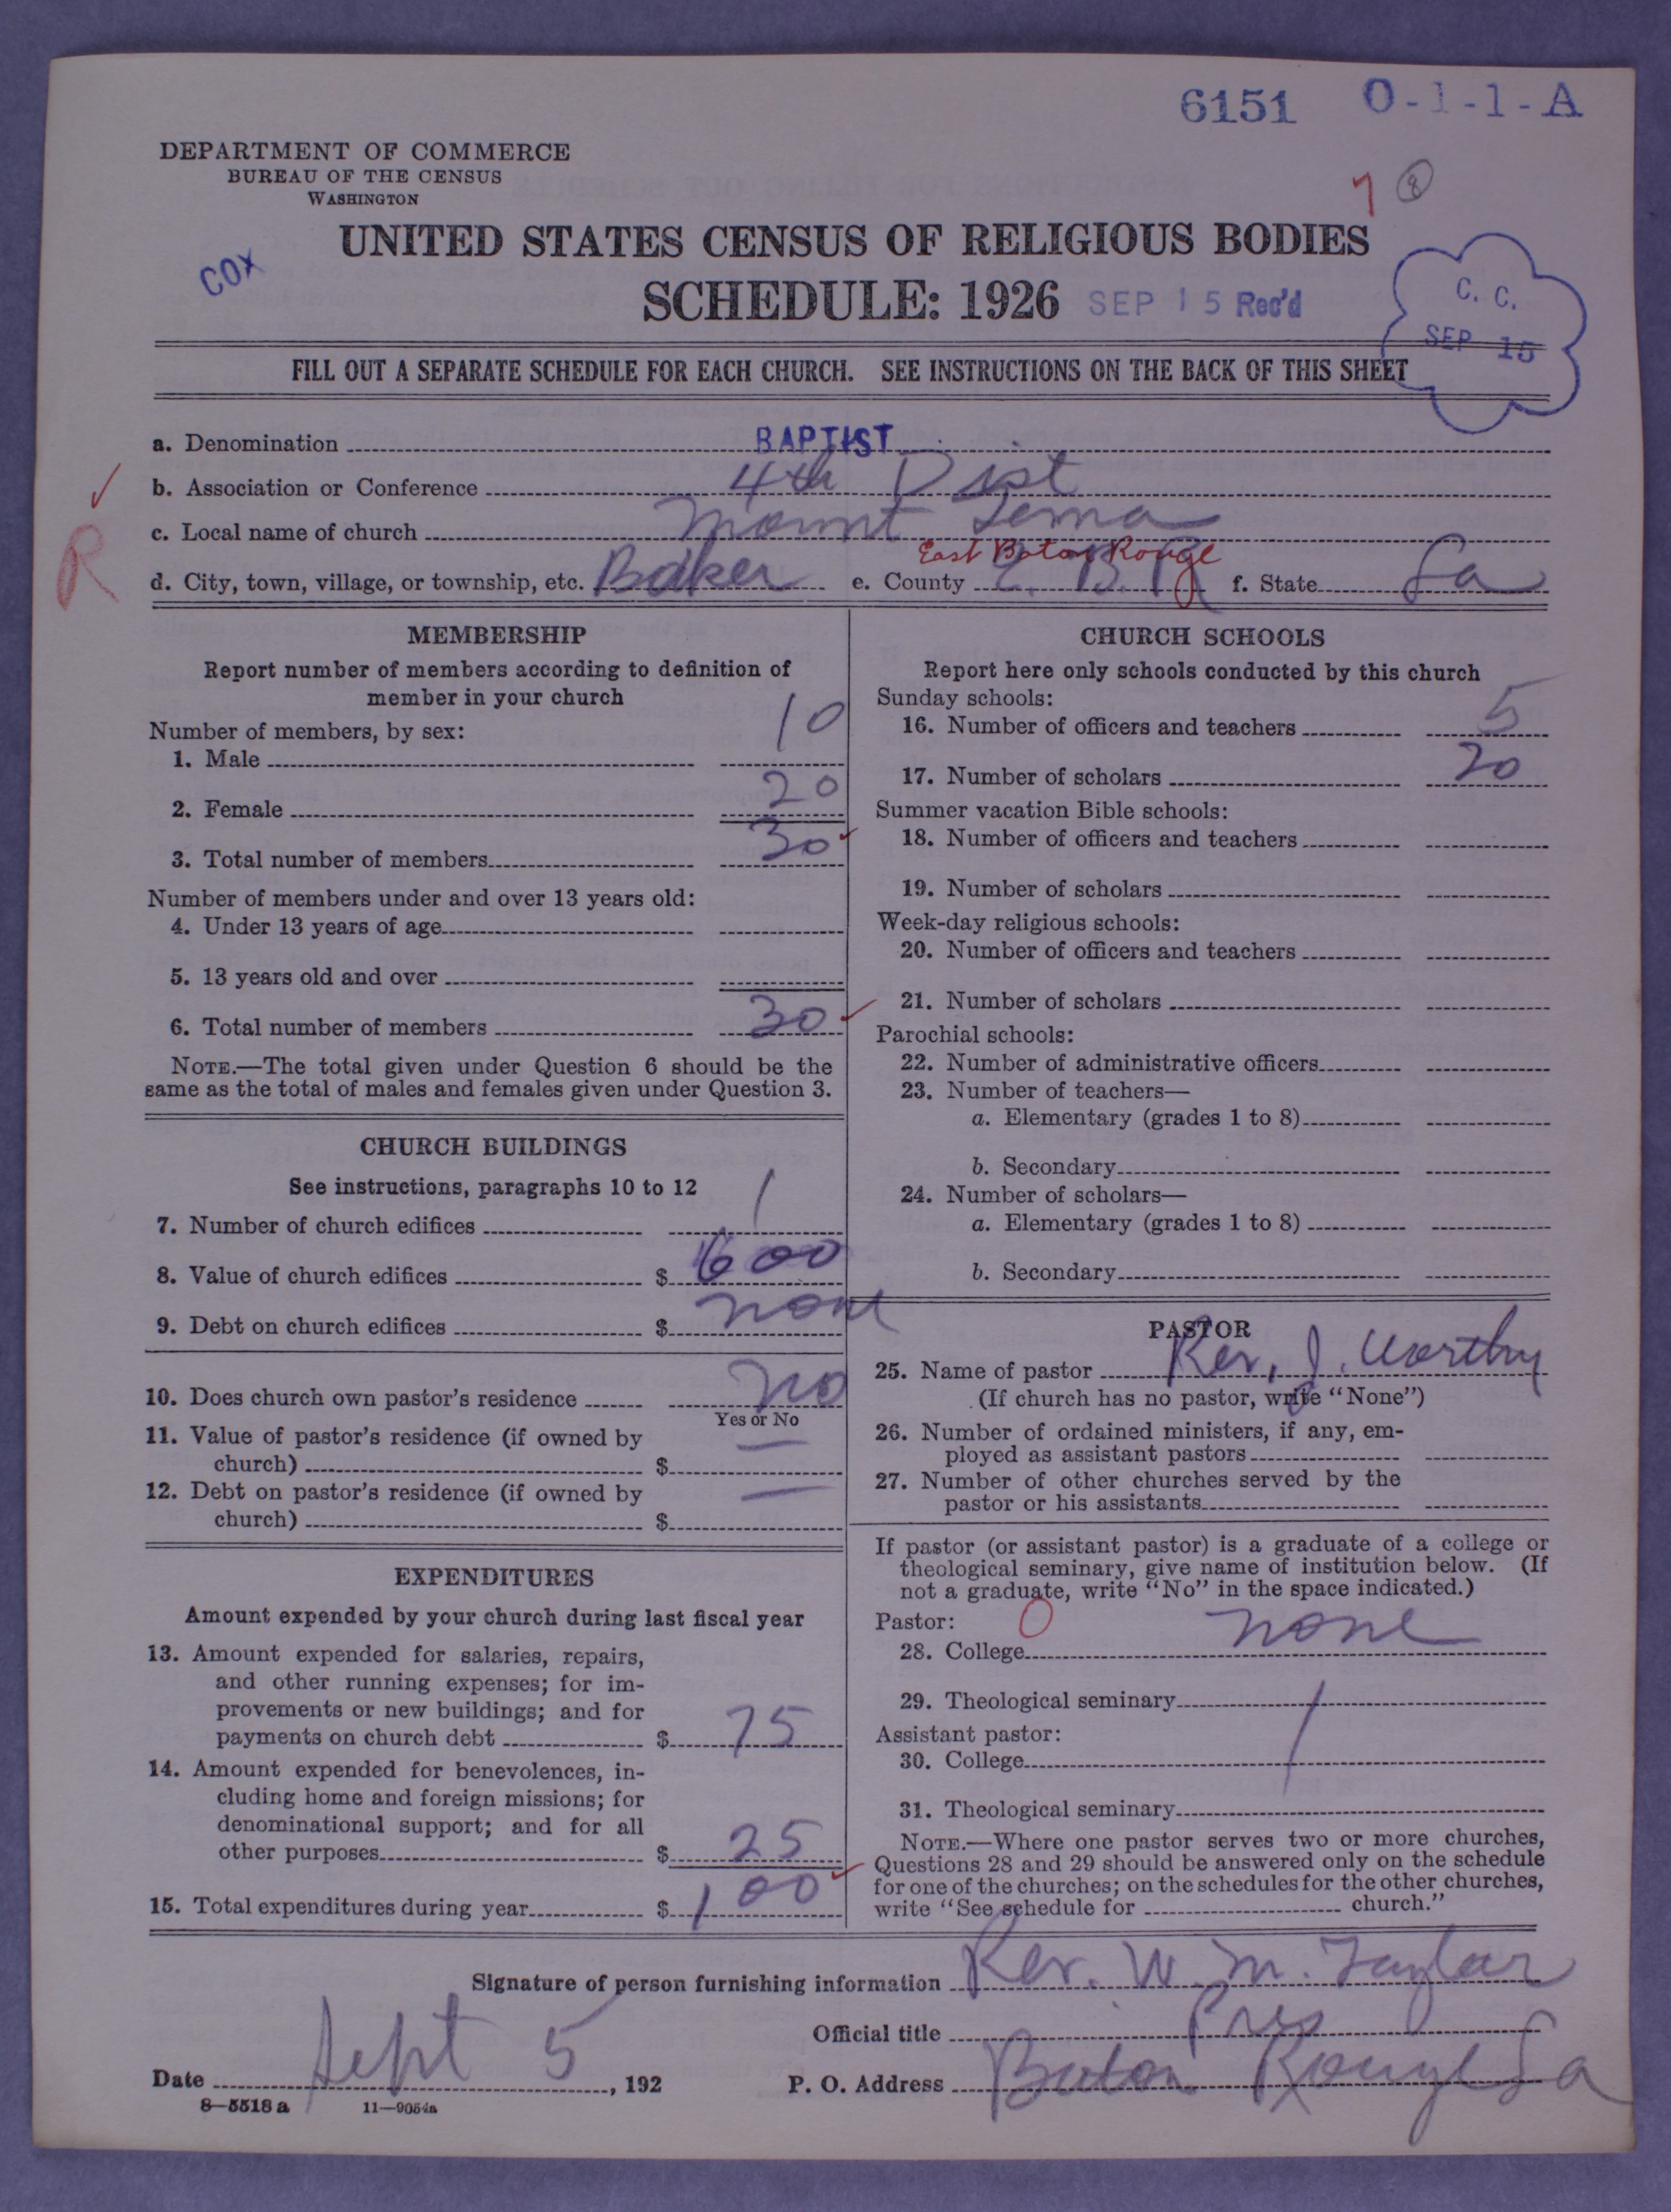 6151 O-1-1-A
DEPARTMENT OF COMMERCE
BUREAU OF THE CENSUS
WASHINGTON
7 8
UNITED STATES CENSUS OF RELIGIOUS BODIES
COX
SCHEDULE: 1926 SEP 15 Rec'd
C. C.
SEP 15
FILL OUT A SEPARATE SCHEDULE FOR EACH CHURCH. SEE INSTRUCTIONS ON THE BACK OF THIS SHEET
a. Denomination BAPTIST
b. Association or Conference 4th Dist
c. Local name of church Mount Tema
East Baton Rouge
R
d. City, town, village, or township, etc. Baker e. County E. B. R f. State La
MEMBERSHIP
Report number of members according to definition of
member in your church
Number of members, by sex:
1. Male 10
2. Female 20
3. Total number of members 30
Number of members under and over 13 years old:
4. Under 13 years of age
5. 13 years old and over
6. Total number of members 30
NOTE.—The total given under Question 6 should be the
same as the total of males and females given under Question 3.
CHURCH BUILDINGS
See instructions, paragraphs 10 to 12
7. Number of church edifices 1
8. Value of church edifices $ 600
9. Debt on church edifices $ none
10. Does church own pastor's residence no
Yes or No
11. Value of pastor's residence (if owned by
church) $ —
12. Debt on pastor's residence (if owned by
church) $ —
EXPENDITURES
Amount expended by your church during last fiscal year
13. Amount expended for salaries, repairs,
and other running expenses; for im-
provements or new buildings; and for
payments on church debt $ 75
14. Amount expended for benevolences, in-
cluding home and foreign missions; for
denominational support; and for all
other purposes $ 25
15. Total expenditures during year $ 100
CHURCH SCHOOLS
Report here only schools conducted by this church
Sunday schools:
16. Number of officers and teachers 5
17. Number of scholars 20
Summer vacation Bible schools:
18. Number of officers and teachers
19. Number of scholars
Week-day religious schools:
20. Number of officers and teachers
21. Number of scholars
Parochial schools:
22. Number of administrative officers
23. Number of teachers—
a. Elementary (grades 1 to 8)
b. Secondary
24. Number of scholars—
a. Elementary (grades 1 to 8)
b. Secondary
PASTOR
25. Name of pastor Rev. J. Worthy
(If church has no pastor, write "None")
26. Number of ordained ministers, if any, em-
ployed as assistant pastors
27. Number of other churches served by the
pastor or his assistants
If pastor (or assistant pastor) is a graduate of a college or
theological seminary, give name of institution below. (If
not a graduate, write "No" in the space indicated.)
Pastor: 0
28. College none
29. Theological seminary
Assistant pastor:
30. College
31. Theological seminary
NOTE.—Where one pastor serves two or more churches,
Questions 28 and 29 should be answered only on the schedule
for one of the churches; on the schedules for the other churches,
write "See schedule for church."
Signature of person furnishing information Rev. W. M. Taylor
Official title Pres
Date Sept 5, 192 P. O. Address Baton Rouge La
8—5518 a 11—9054a